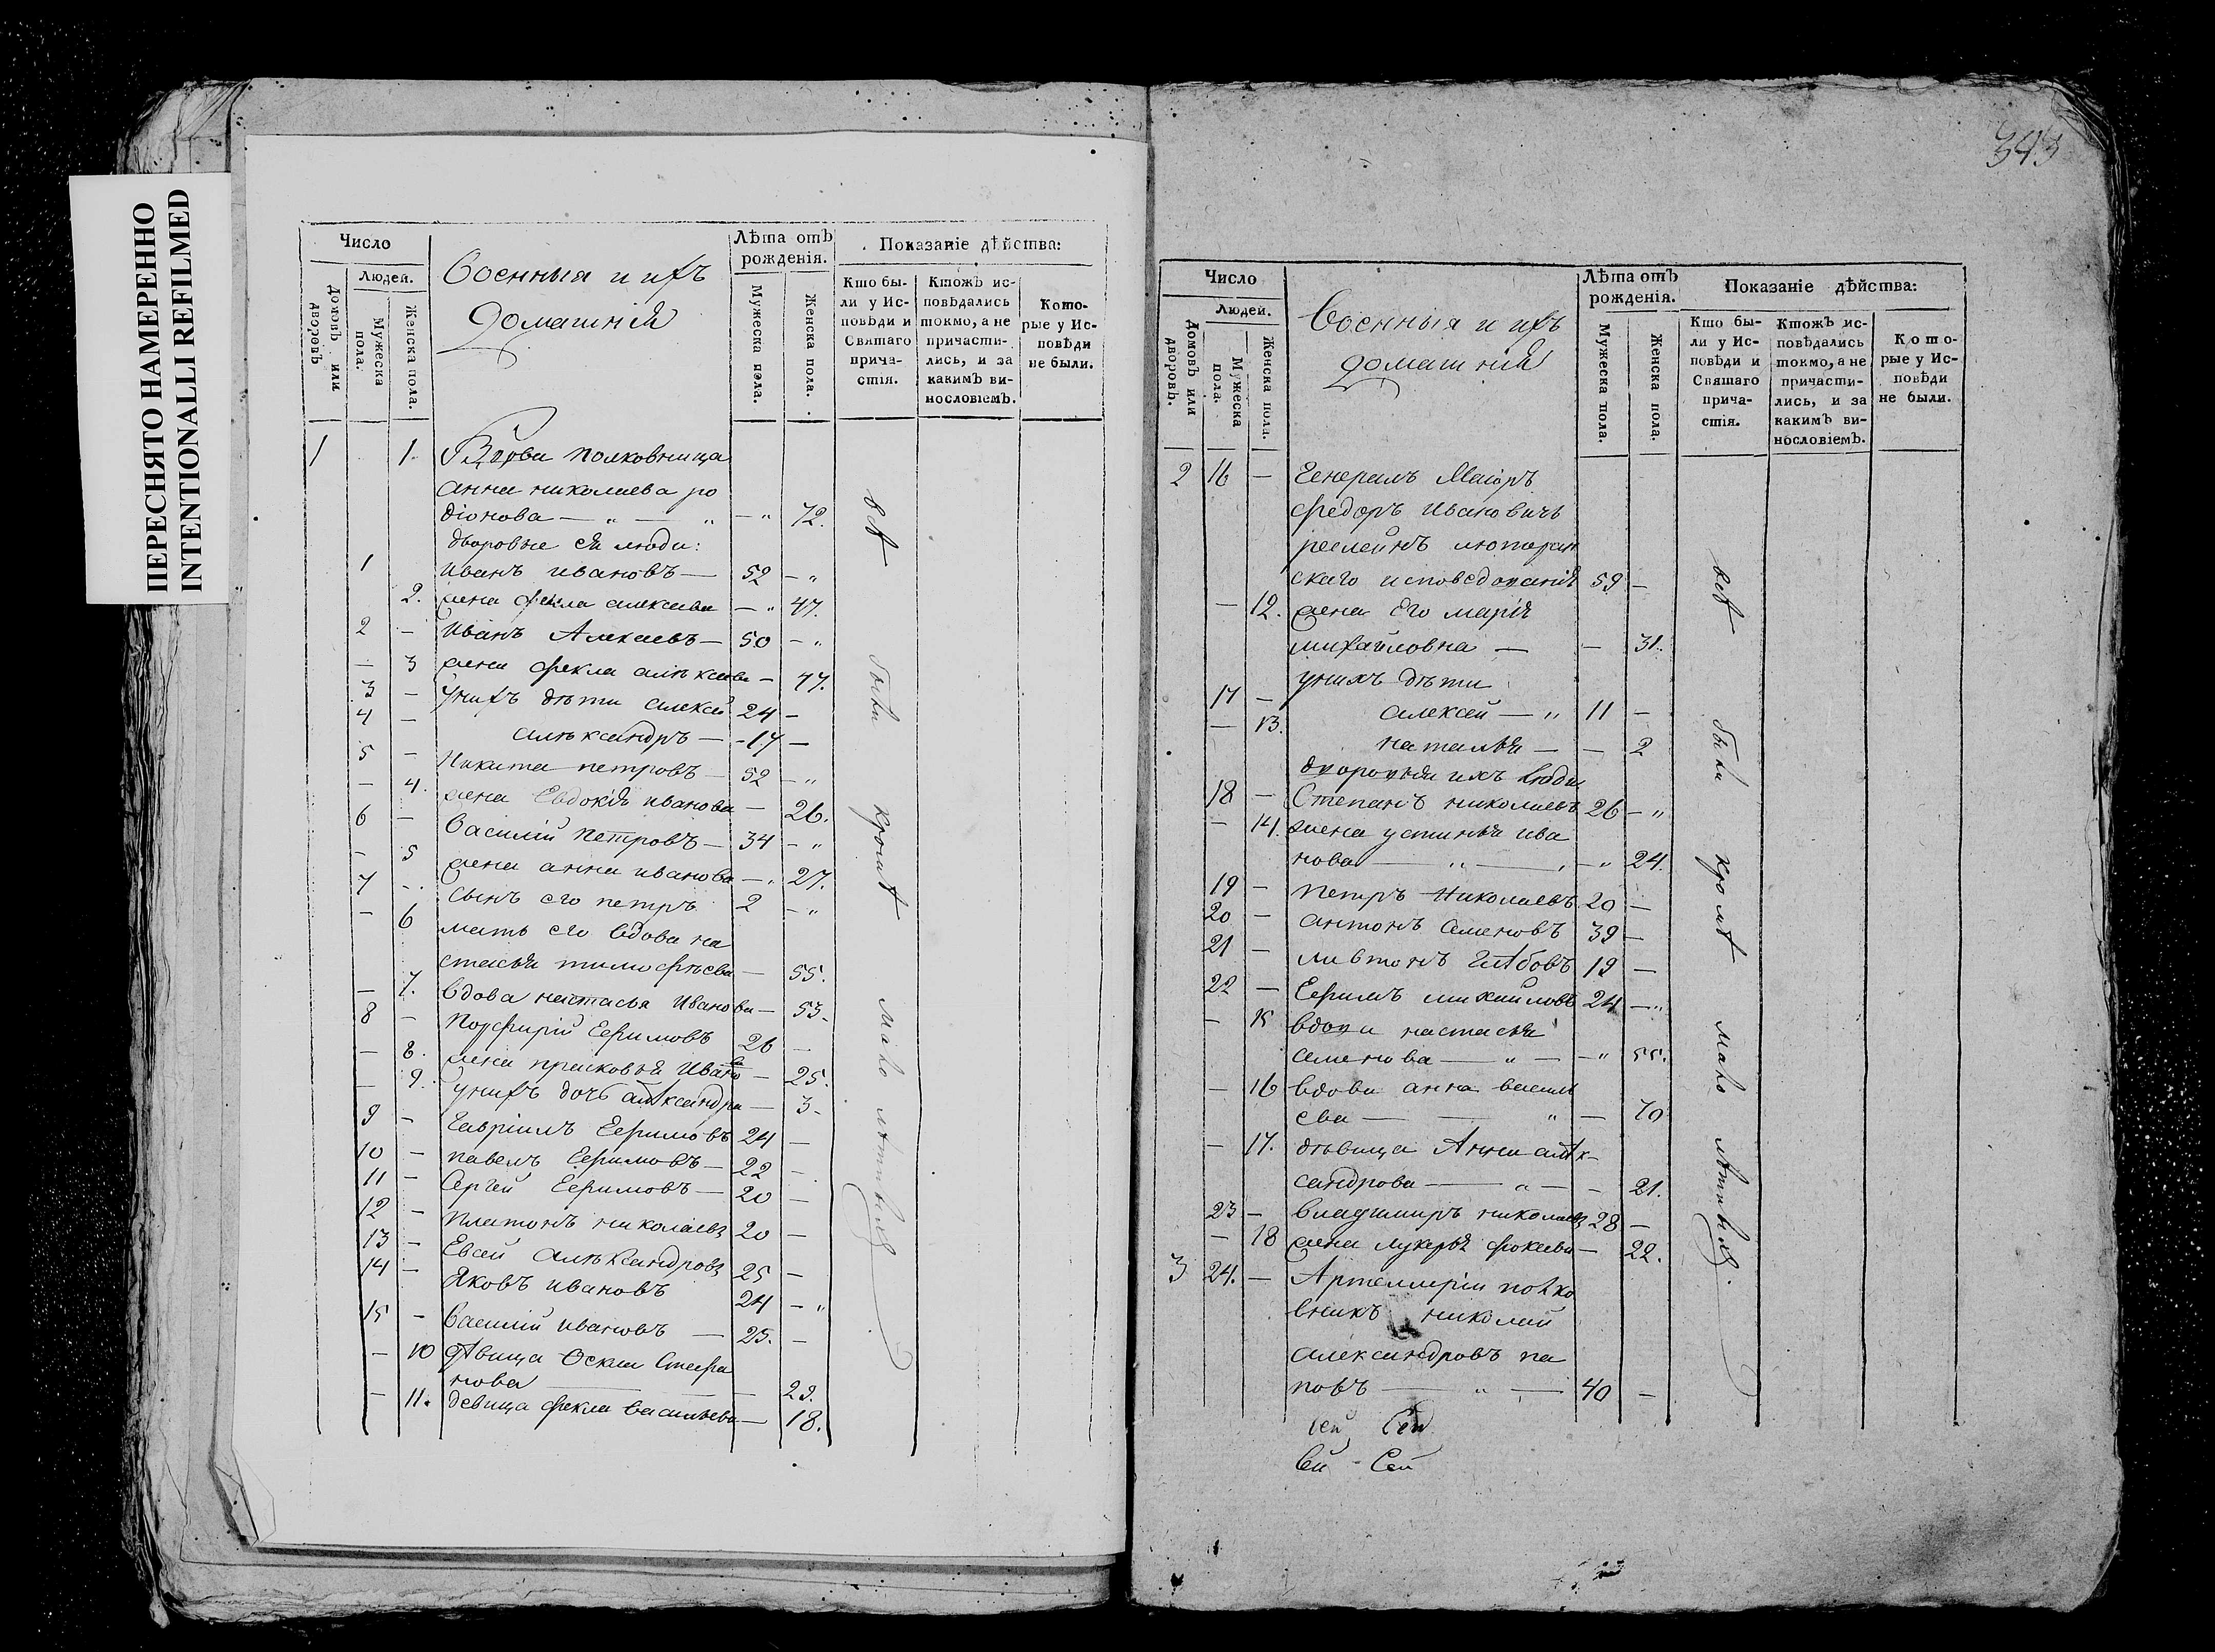 ПЕРЕСНЯТО НАМЕРЕННО
INTENTIONALLI REFILMED
Число
Людей.
Домовъ или дворовъ
Мужеска пола.
Женска пола.
Военныя и ихъ
Домашнія
Лѣта отъ рожденія.
Мужеска пола.
Женска пола.
Показаніе дѣйства:
Кто бы-
ли у Ис-
повѣди и
Святаго
прича-
стія.
Ктожъ ис-
повѣдались
токмо, а не
причасти-
лись, и за
какимъ ви-
нословіемъ.
Кото-
рые у Ис-
повѣди
не были.
1 1. Вдова полковница
анна николаева ро
діонова — „ — „ — „ 72.
дворовые ея люди:
1 иванъ ивановъ — 52 — „
2. жена фекла алексеева — „ 47.
2 — Иванъ Алексеевъ — 50 — „
— 3 жена фекла алѣксеева — 47.
3 — унихъ дѣти алексей 24 —
4 — алѣксандръ — 17 —
5 — Никита петровъ — 52 — „
— 4. жена Евдокія иванова — 26.
6 — Василій Петровъ — 34 — „
— 5 жена анна иванова — „ 27.
7 — сынъ его петръ 2 — „
— 6 мать его вдова на
стасья тимофѣева — 55.
— 7. вдова настасья Иванова — 53.
8 — Порфирій Ефимовъ 26 —
— 8. жена прасковья Иванова — 25.
— 9. унихъ дочь алѣксандра — 3.
9 — Гавріилъ Ефимовъ 24 —
10 — павелъ Ефимовъ — 22 —
11 — Сергей Ефимовъ — 20 —
12 — Платонъ николаевъ 20 —
13 — Евсей алѣксандровъ 25 —
14 — Яковъ ивановъ 24 — „
15 — Василій ивановъ — 25. —
— 10 дѣвица Фекла Стефа
нова — 29.
— 11. девица фекла васильева — 18.
всѣ были кромѣ мало лѣтныхъ
343
Число
Людей.
Домовъ или дворовъ.
Мужеска пола.
Женска пола.
Военныя и ихъ
домашнія
Лѣта отъ рожденія.
Мужеска пола.
Женска пола.
Показаніе дѣйства:
Кто бы-
ли у Ис-
повѣди и
Святаго
прича-
стія.
Ктожъ ис-
повѣдались
токмо, а не
причасти-
лись, и за
какимъ ви-
нословіемъ.
Кото-
рые у Ис-
повѣди
не были.
2 16 — Генералъ Маіоръ
федоръ ивановичъ
лютеран
скаго исповедованія 59 —
— 12. жена Его марія
михайловна — — 31.
унихъ дѣти
17 — алексей — „ 11 —
— 13. наталья — — 2
дворовыя ихъ люди
18 — Степанъ николаевъ 26 — „
— 14. жена устинья ива
нова — „ — „ 24.
19 — Петръ Николаевъ 20 —
20 — антонъ семеновъ 39 —
21 — глѣбовъ 19 —
22 — Ефимъ михайловъ 24 — „
— 15 вдова настасья
семенова — „ — „ 55.
— 16 вдова анна василь
ева — „ — 70
— 17. дѣвица Анна алѣк-
сандрова — „ — 21.
23 — владимиръ николаевъ 28 —
— 18 жена лукерья фокеева — 22.
3 24. — Артеллеріи полко
вникъ николай
александровъ па
повъ — „ — 40 —
всѣ были кромѣ мало лѣтныхъ.